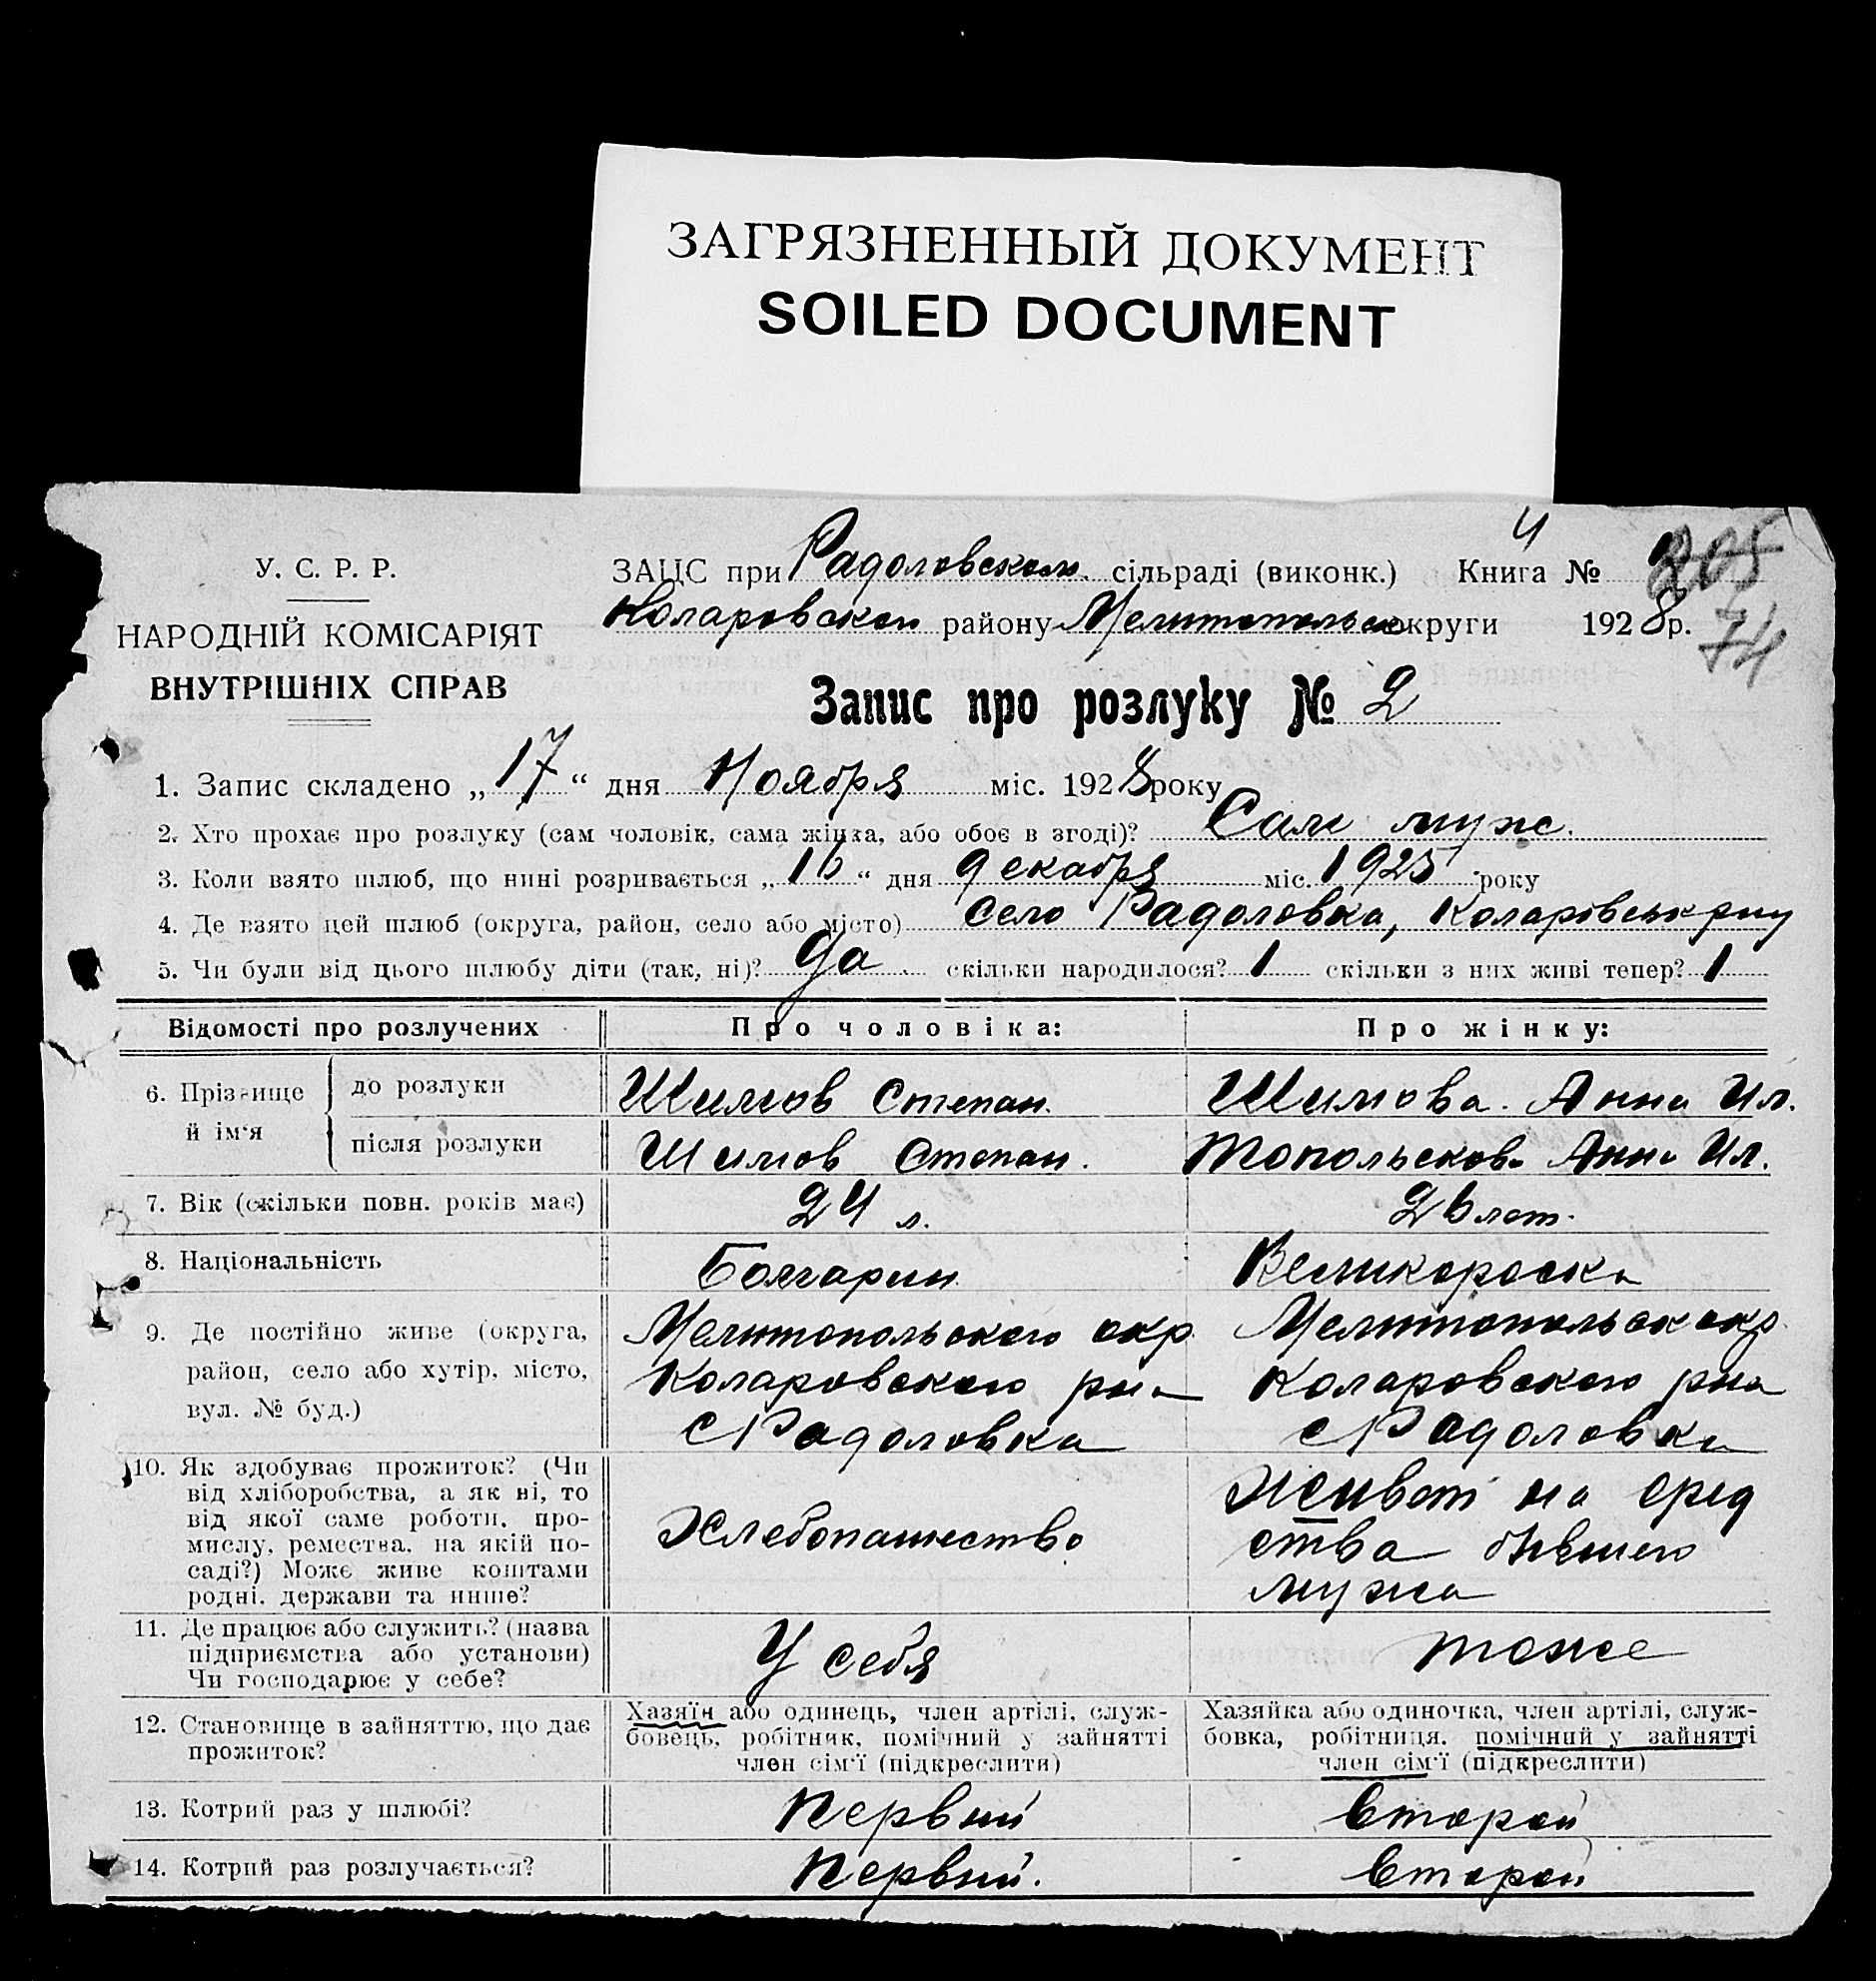 ЗАГРЯЗНЕННЫЙ ДОКУМЕНТ
SOILED DOCUMENT
У. С. Р. Р.
НАРОДНІЙ КОМІСАРІЯТ
ВНУТРІШНІХ СПРАВ
ЗАЦС при Радоловском сільраді (виконк.) Книга № 205
4
Коларовского району Мелитопольско округи 1928 р.
74
Запис про розлуку № 2
1. Запис складено „17“ дня Ноября міс. 1928 року
2. Хто прохає про розлуку (сам чоловік, сама жінка, або обоє в згоді)? Сам муж.
3. Коли взято шлюб, що нині розривається „16“ дня декабря міс. 1925 року
4. Де взято цей шлюб (округа, район, село або місто) Село Радоловка, Коларівськ рну
5. Чи були від цього шлюбу діти (так, ні)? Да. скільки народилося? 1 скільки з них живі тепер? 1
Відомості про розлучених Про чоловіка: Про жінку:
6. Прізвище й ім'я до розлуки Шимов Степан. Шимова. Анна Ил.
після розлуки Шимов Степан. Топольскова Анна Ил.
7. Вік (скільки повн. років має) 24 л. 26 лет.
8. Національність Болгарин Великороска
9. Де постійно живе (округа,
район, село або хутір, місто,
вул. № буд.)
Мелитопольского окр.
Коларовского рна
с Радоловка
Мелитопольск окр.
Коларовского рна
с Радоловка
10. Як здобуває прожиток? (Чи
від хліборобства, а як ні, то
від якої саме роботи, про-
мислу, ремества, на якій по-
саді?) Може живе коштами
родні, держави та инше?
Хлебопашество
Живет на сред
ства бывшего
мужа
11. Де працює або служить? (назва
підприємства або установи)
Чи господарює у себе?
У себя
тоже
12. Становище в зайняттю, що дає
прожиток?
Хазяїн або одинець, член артілі, служ-
бовець, робітник, помічний у зайнятті
член сім'ї (підкреслити)
Хазяйка або одиночка, член артілі, служ-
бовка, робітниця, помічний у зайнятті
член сім'ї (підкреслити)
13. Котрий раз у шлюбі? Первый Второй
14. Котрий раз розлучається? Первый. Второй